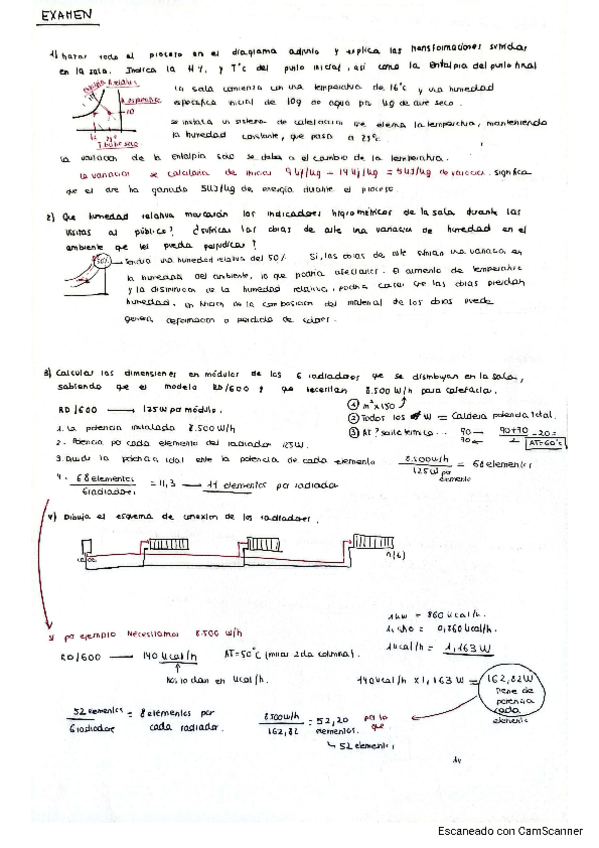 EXAMEN
1) hazar todo el proceso en el diagrama adjunto y explica las transformaciones sufridas
en la sala. Indica la H%, y Tªc del punto inicial, así como la entalpia del punto final
la sala comienza con una temperatura de 16°c y una humedad
específica inicial de 10g de agua por kg de aire seco.
se instala un sistema de calefacción que eleva la temperatura, manteniendo
la humedad constante, que pasa a 23ºc
la variación de la entalpia solo se debe a el cambio de la temperatura.
la variación se calcularia de 9 kJ/kg - 14 kJ/kg = 5kJ/kg de variación. significa
que el aire ha ganado 5kJ/kg de energía durante el proceso.
2) Que humedad relativa marcarán los indicadores higrométricos de la sala durante las
visitas al público? ¿sufrirán las obras de arte una variación de humedad en el
ambiente que les pueda perjudicar?
50%
Tendria una humedad relativa del 50% Si, las obras de arte sufrirán una variación en
la humedad del ambiente, lo que podría afectarles. El aumento de temperatura
y la disminución de la humedad relativa, podría causar que las obras pierdan
humedad, en función de la composición del material de las obras puede
generar deformación o pérdida de color.
3) Calcular las dimensiones en módulos de los 6 radiadores que se distribuyen en la sala,
sabiendo que el modelo RD/600 y que necesitan 8.500 W/h para calefactarla.
RD/600 → 125W por módulo.
① m² x 150
② Todos los W = Caldera potencia total.
1. La potencia instalada 8.500 W/h
③ ΔT? salto térmico... 90 — 90+70 - 20 =
70 ← 2 ΔT=60°c
2. Potencia por cada elemento del radiador 125W.
3. Divide la potencia total entre la potencia de cada elemento 8.500W/h = 68 elementos
125W por elemento
4. 68 elementos = 11,3 → 11 elementos por radiador
6 radiadores
4) Dibuja el esquema de conexión de los radiadores.
n(6)
1kw = 860 kcal/h.
Si por ejemplo Necesitamos 8.500 W/h
1kcal/h = 1,163 W
RD/600 — 140 kcal/h ΔT=50°C (mirar 2da columna).
Nos lo dan en kcal/h.
140kcal/h x 1,163 W = 162,82W
tiene de
potencia
cada
elemento
52 elementos = 8 elementos por
6 radiadores cada radiador.
8.500W/h = 52,20 por lo
162,82 elementos. que
↳ 52 elementos
Escaneado con CamScanner